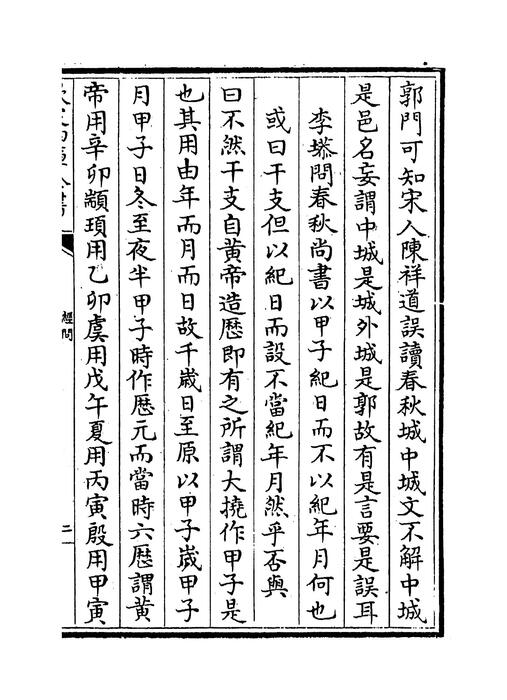 郭門可知宋人陳祥道誤讀春秋城中城文不解中城
是邑名妄謂中城是城外城是郭故有是言要是誤耳
李塨問春秋尚書以甲子紀日而不以紀年月何也
或曰干支但以紀日而設不當紀年月然乎否與
曰不然干支自黄帝造歴即有之所謂大撓作甲子是
也其用由年而月而日故千歳日至原以甲子嵗甲子
月甲子日冬至夜半甲子時作厯元而當時六厯謂黄
帝用辛卯顓頊用乙卯虞用戊午夏用丙寅殷用甲寅
經問
二